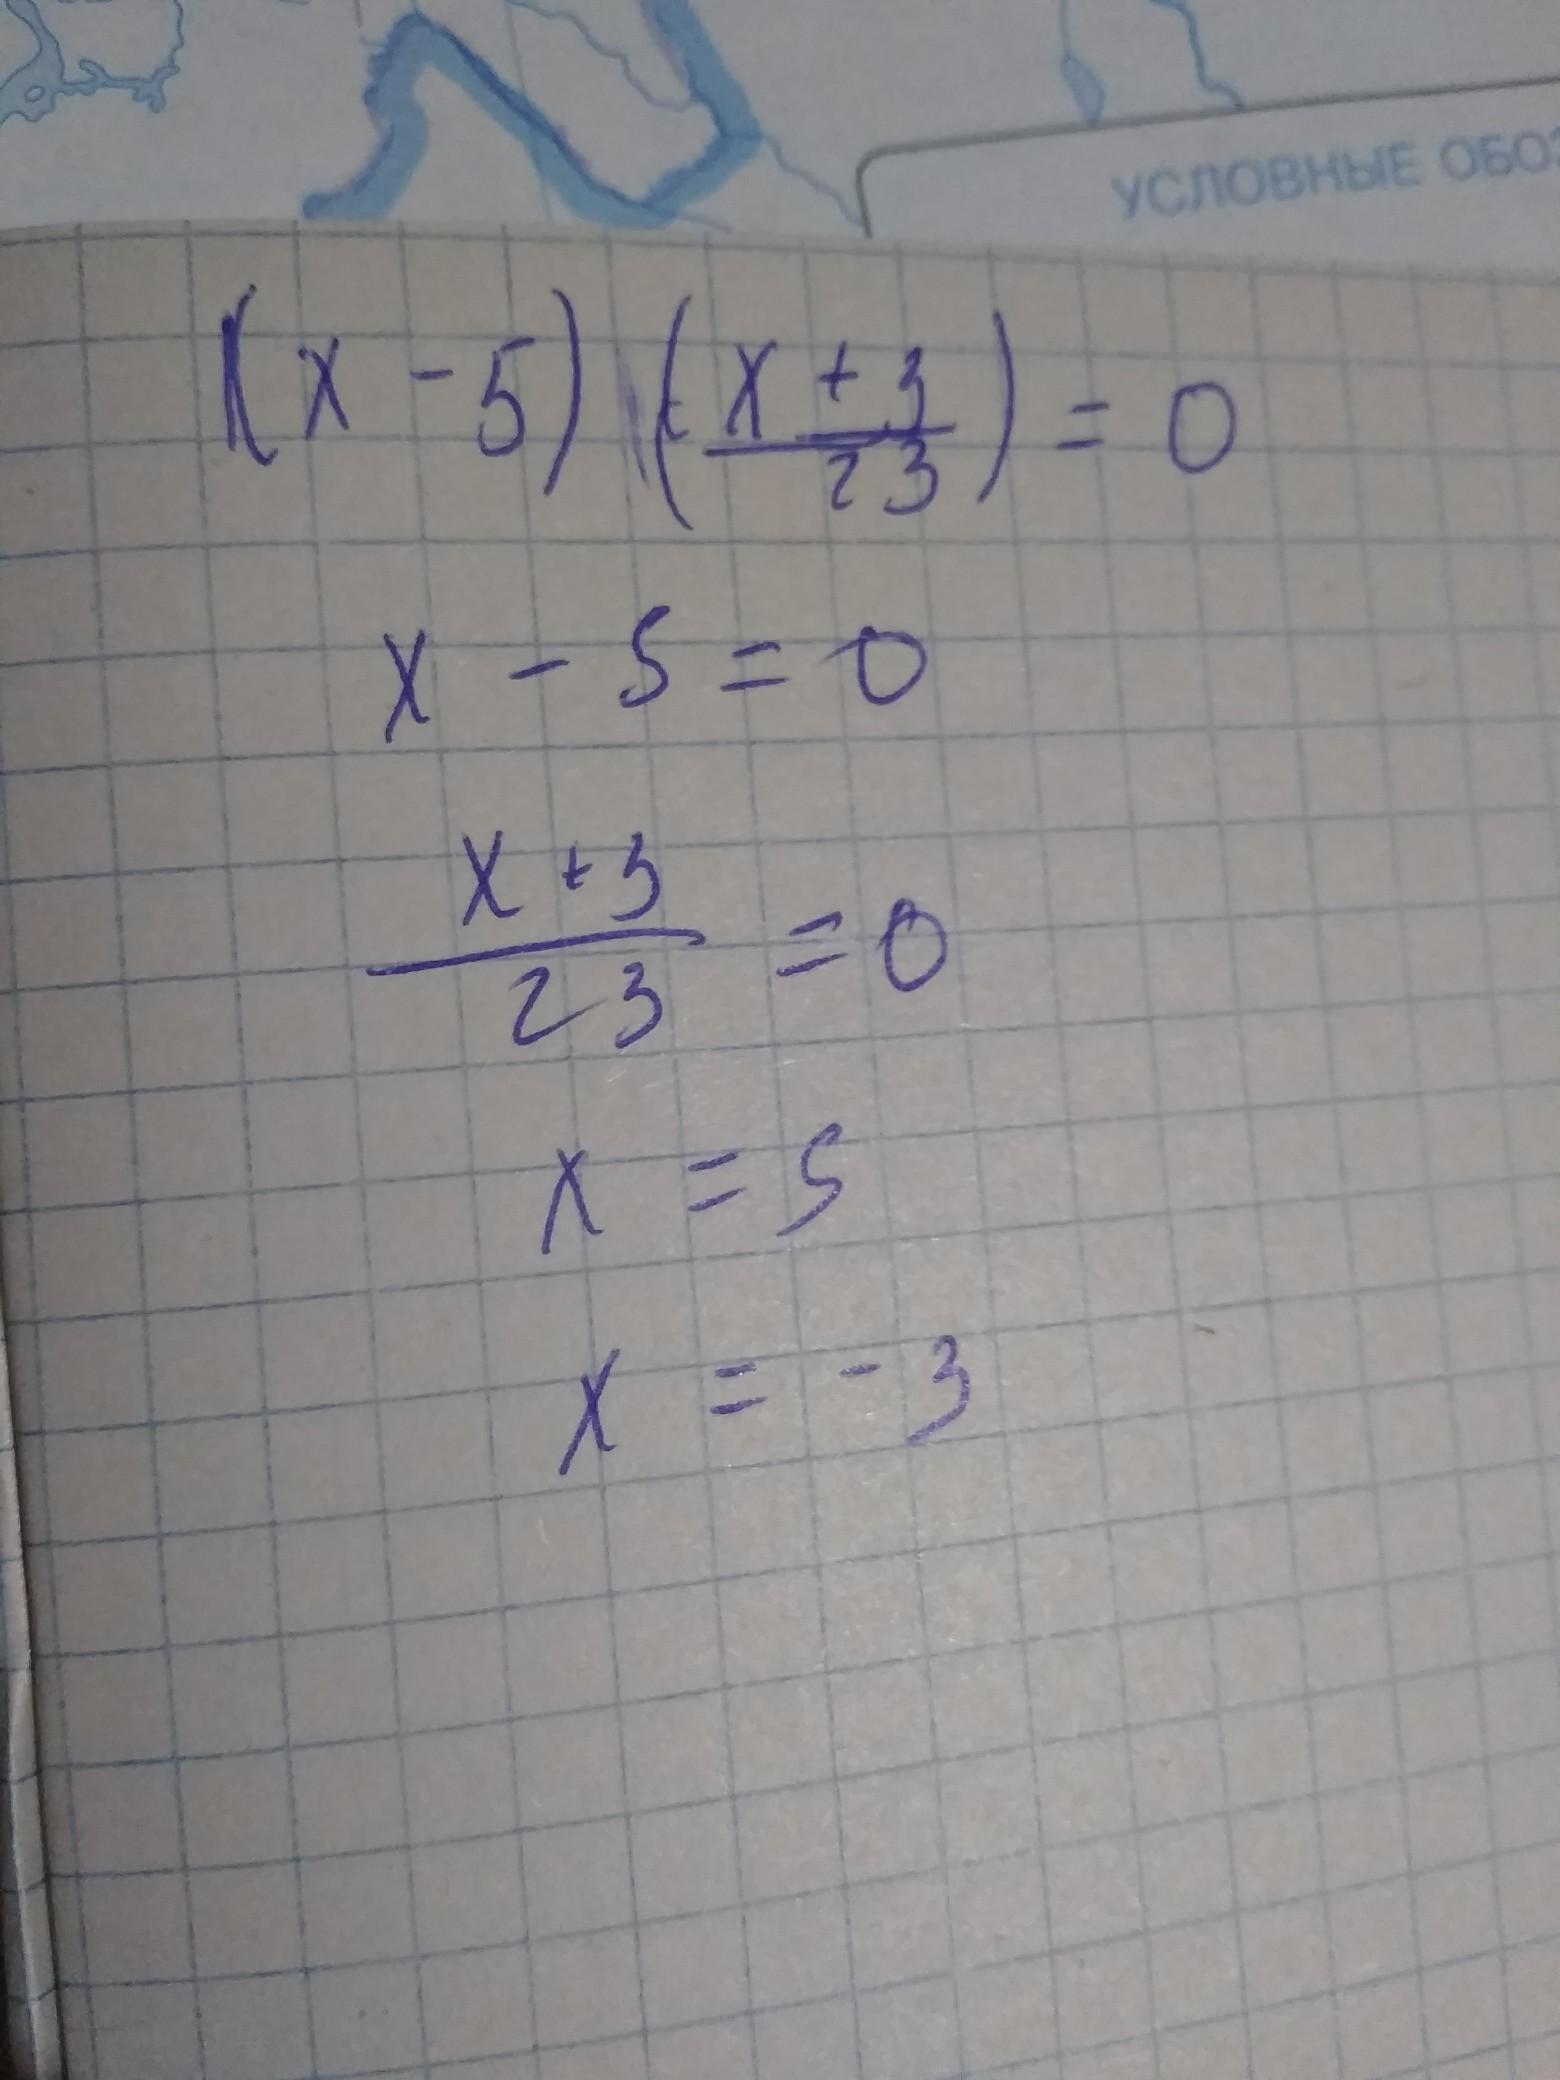 УСЛОВНЫЕ
(x - 5) (x + 3 / 23) = 0
x - 5 = 0
x + 3
23 = 0
x = 5
x = - 3